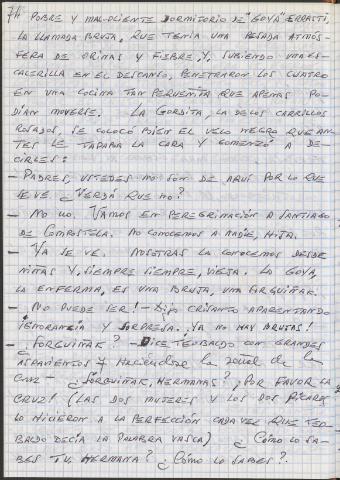 74 POBRE Y MAL-OLIENTE DORMITORIO DE "GOYA" ERRASTI,
LA LLAMADA BRUJA, QUE TENIA UNA PESADA ATMÓS-
FERA DE ORINAS Y FIEBRE, Y, SUBIENDO UNA ES-
CALERILLA EN EL DESCANSO, PENETRARON LOS CUATRO
EN UNA COCINA TAN PEQUEÑITA QUE APENAS PO-
DIAN MOVERSE. LA GORDITA, LA DE LOS CARRILLOS
ROSADOS, SE COLOCÓ BIEN EL VELO NEGRO QUE AN-
TES LE TAPABA LA CARA Y COMENZÓ A DE-
CIRLES:
- PADRES, USTEDES NO SON DE AQUÍ POR LO QUE
SE VE. ¿VERDÁ QUE NO?
- NO NO. VAMOS EN PEREGRINACIÓN A SANTIAGO
DE COMPOSTELA. NO CONOCEMOS A NADIE, HIJA.
- YA SE VE. NOSOTRAS LA CONOCEMOS DESDE
NIÑAS Y, SIEMPRE SIEMPRE, VIEJA. LA GOYA,
LA ENFERMA, ES UNA BRUJA, UNA SORGUIÑAK.
- ¡NO PUEDE SER! - dijo CRISANTO APARENTANDO
IGNORANCIA Y SORPRESA. ¡YA NO HAY BRUJAS!
- ¿SORGUIÑAK? - DICE TEOBALDO CON GRANDES
ASPAVIENTOS Y HACIÉNDOSE la señal de la
CRUZ - ¿SORGUIÑAK, HERMANAS? ¡POR FAVOR LA
CRUZ! (LAS DOS MUJERES Y LOS DOS PICAROS
LO HICIERON A LA PERFECCIÓN CADA VEZ QUE TEO-
BALDO DECÍA LA PALABRA VASCA) ¿CÓMO LO SA-
BES TU, HERMANA? ¿CÓMO LO SABES?.